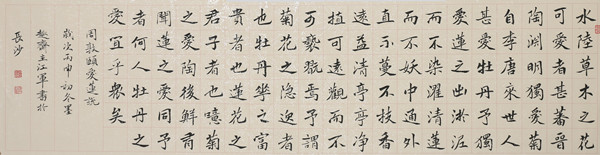 水陸草木之花
可愛者甚蕃晉
陶淵明獨愛菊
自李唐來世人
甚愛牡丹予獨
愛蓮之出淤泥
而不染濯清漣
而不妖中通外
直不蔓不枝香
遠益清亭亭淨
植可遠觀而不
可褻翫焉予謂
菊花之隱逸者
也牡丹華之富
貴者也蓮花之
君子者也噫菊
之愛陶後鮮有
聞蓮之愛同予
者何人牡丹之
愛宜乎眾矣
周敦頤愛蓮說
歲次丙申初冬墨
趣齋主江軍書於
長沙